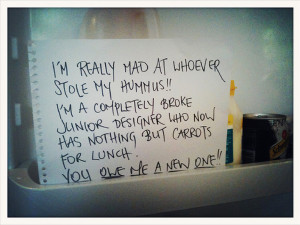 I'M REALLY MAD AT WHOEVER
STOLE MY HUMMUS!!
I'M A COMPLETELY BROKE
JUNIOR DESIGNER WHO NOW
HAS NOTHING BUT CARROTS
FOR LUNCH.
YOU OWE ME A NEW ONE!!